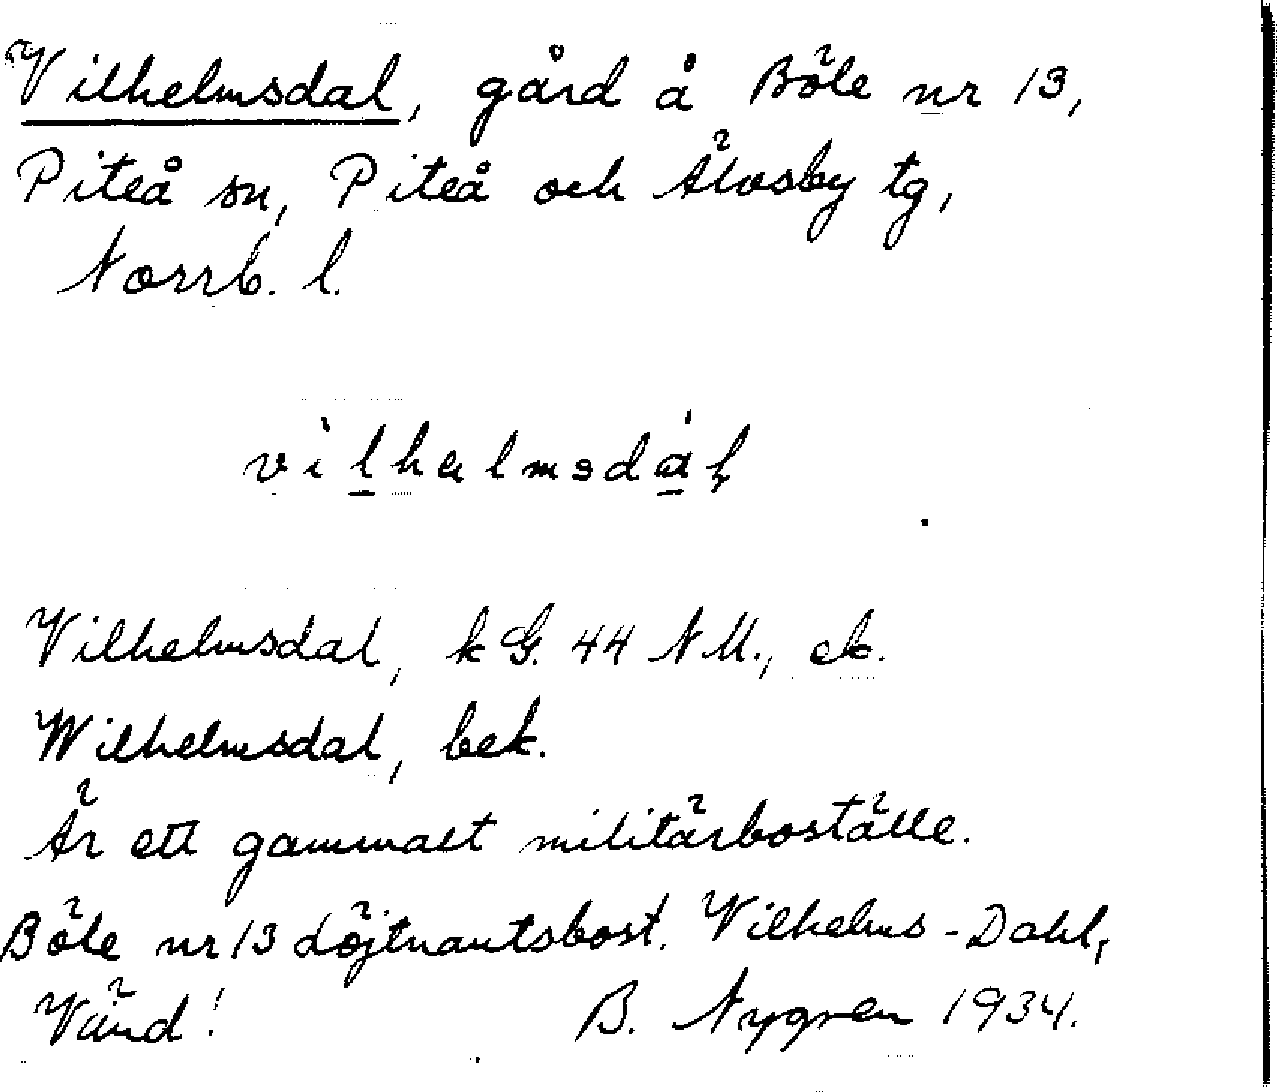 Vilhelmsdal, gård å Böle nr 13,
Piteå sn, Piteå och Älvsby tg,
Norrb. l.
vilhelmsdal
Vilhelmsdal, kG. 44 NM., ek.
Wilhelmsdal, bek.
Är ett gammalt militärboställe.
Böle nr 13 löjtnantsbost. Vilhelms-Dahl,
Vänd! B. Nygren 1934.